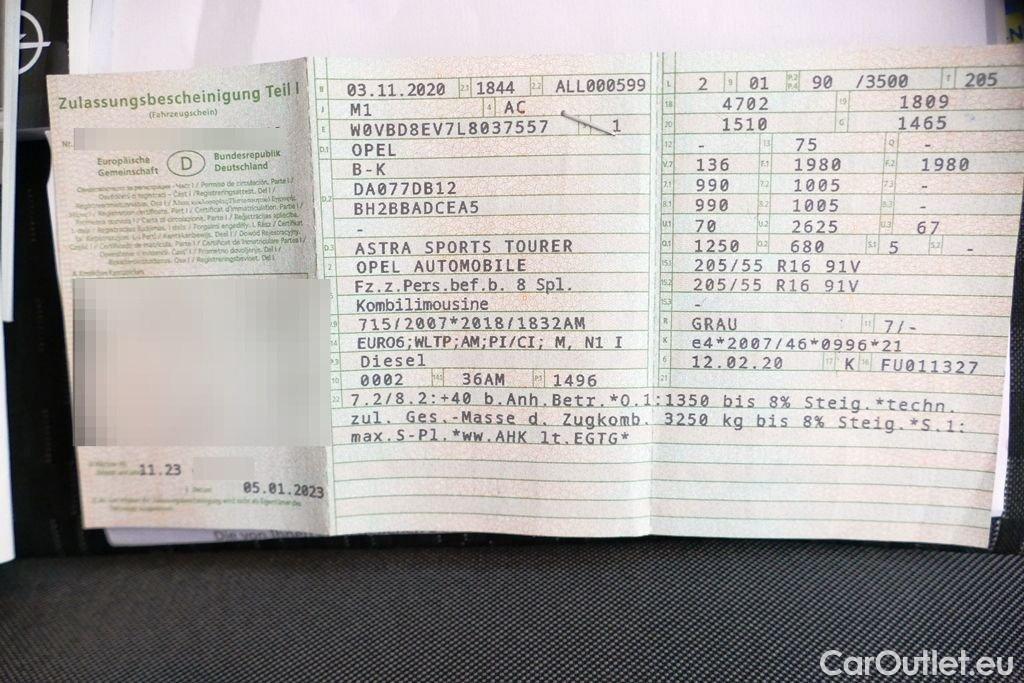 Zulassungsbescheinigung Teil I
(Fahrzeugschein)
Nr.
Europäische Gemeinschaft
D
Bundesrepublik Deutschland
11.23
05.01.2023
B 03.11.2020 2.1 1844 2.2 ALL000599
J M1 4 AC
E W0VBD8EV7L8037557 1
D.1 OPEL
B-K
D.2 DA077DB12
BH2BBADCEA5
-
D.3 ASTRA SPORTS TOURER
2 OPEL AUTOMOBILE
Fz.z.Pers.bef.b. 8 Spl.
Kombilimousine
V.9 715/2007*2018/1832AM
14 EURO6;WLTP;AM;PI/CI; M, N1 I
P.3 Diesel
10 0002 14.1 36AM P.1 1496
L 2 9 01 P.2 P.4 90 /3500 T 205
18 4702 19 1809
20 1510 G 1465
12 - 13 75 Q -
V.7 136 F.1 1980 F.2 1980
7.1 990 7.2 1005 7.3 -
8.1 990 8.2 1005 8.3 -
U.1 70 U.2 2625 U.3 67
O.1 1250 O.2 680 S.1 5 S.2 -
15.1 205/55 R16 91V
15.2 205/55 R16 91V
15.3 -
R GRAU 11 7/-
K e4*2007/46*0996*21
6 12.02.20 17 K 16 FU011327
21
22 7.2/8.2:+40 b.Anh.Betr.*O.1:1350 bis 8% Steig.*techn.
zul. Ges.-Masse d. Zugkomb. 3250 kg bis 8% Steig.*S.1:
max.S-Pl.*ww.AHK lt.EGTG*
CarOutlet.eu